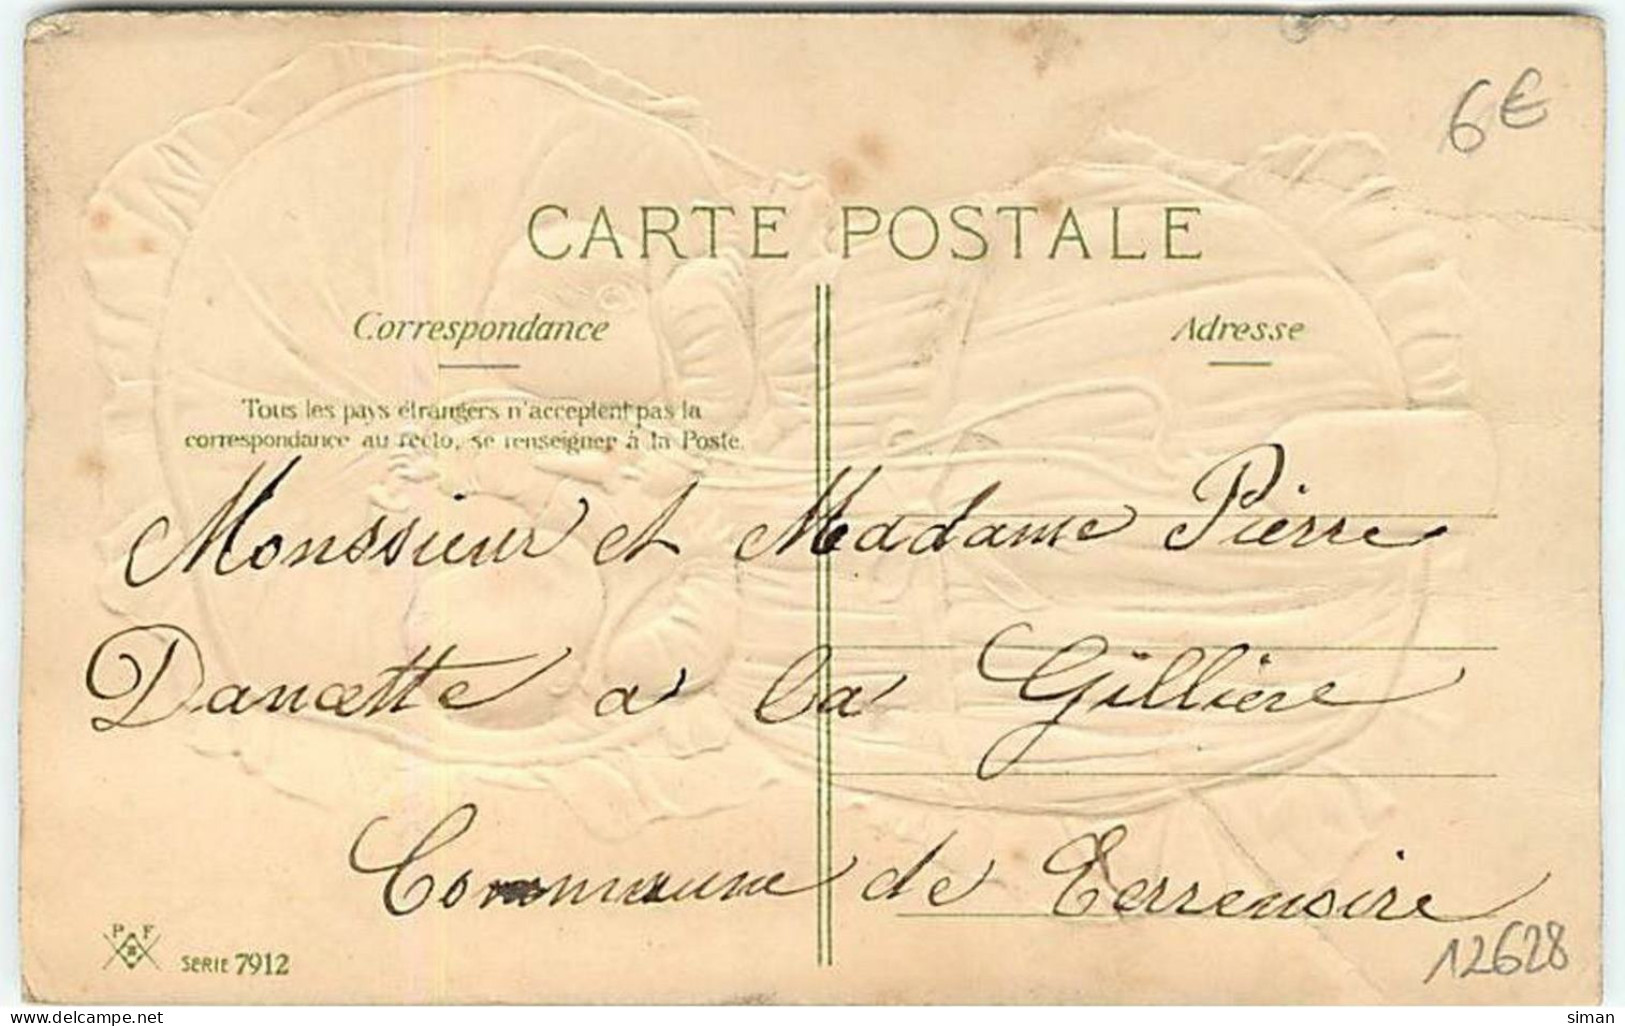 6€
CARTE POSTALE
Correspondance
Adresse
Tous les pays étrangers n'acceptent pas la
correspondance au recto, se renseigner à la Poste.
Monssieur et Madame Pierre
Dancette a la Gillière
Commune de Terrenoire
P F
SERIE 7912
12628
siman
delcampe.net